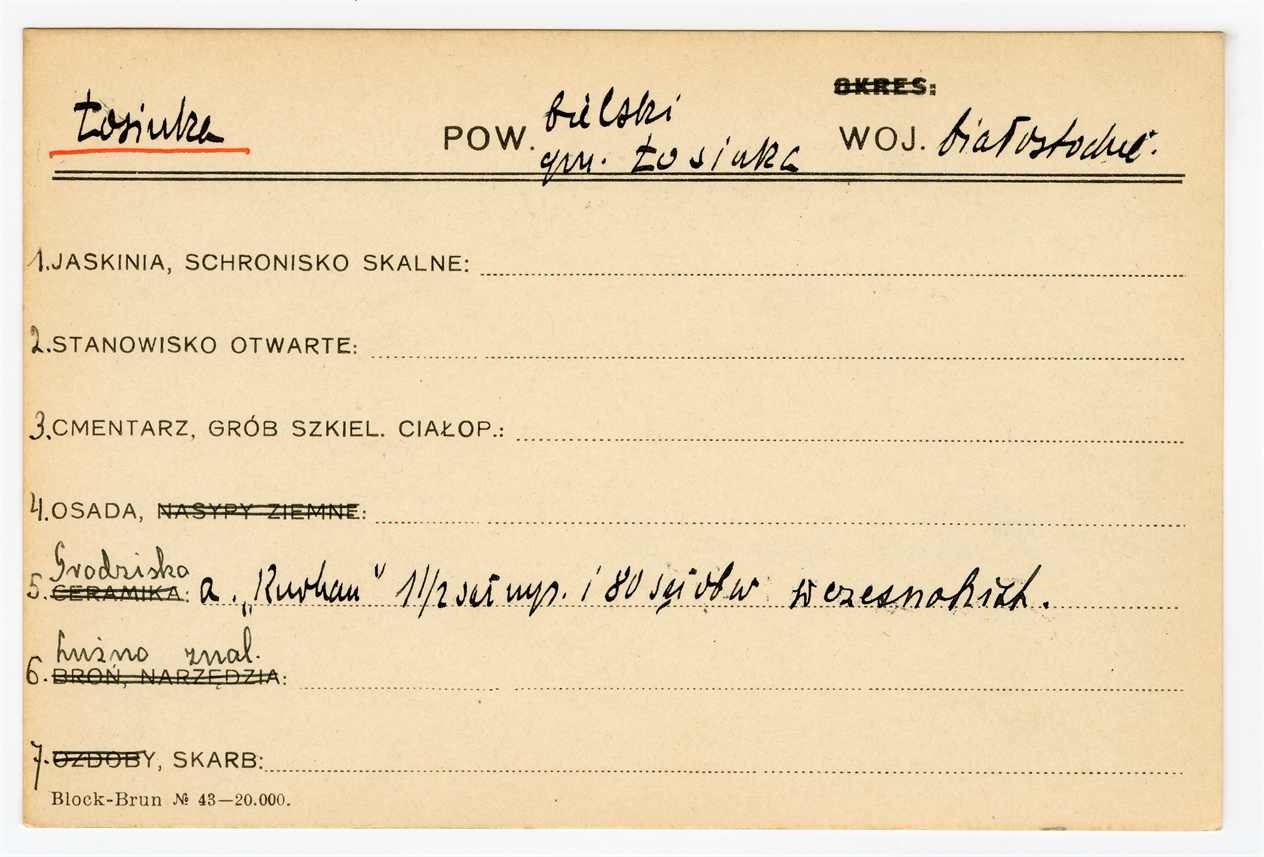 OKRES:
Łosinka POW. bielski WOJ. białostockie.
gm. Łosinka
1. JASKINIA, SCHRONISKO SKALNE:
2. STANOWISKO OTWARTE:
3. CMENTARZ, GRÓB SZKIEL. CIAŁOP.:
4. OSADA, NASYPY ZIEMNE:
Grodzisko
5. CERAMIKA: a. „Kurhan" 1 1/2 saż wys. i 80 saż obw
Luźno znal.
6. BROŃ, NARZĘDZIA:
7. OZDOBY, SKARB:
Block-Brun № 43—20.000.